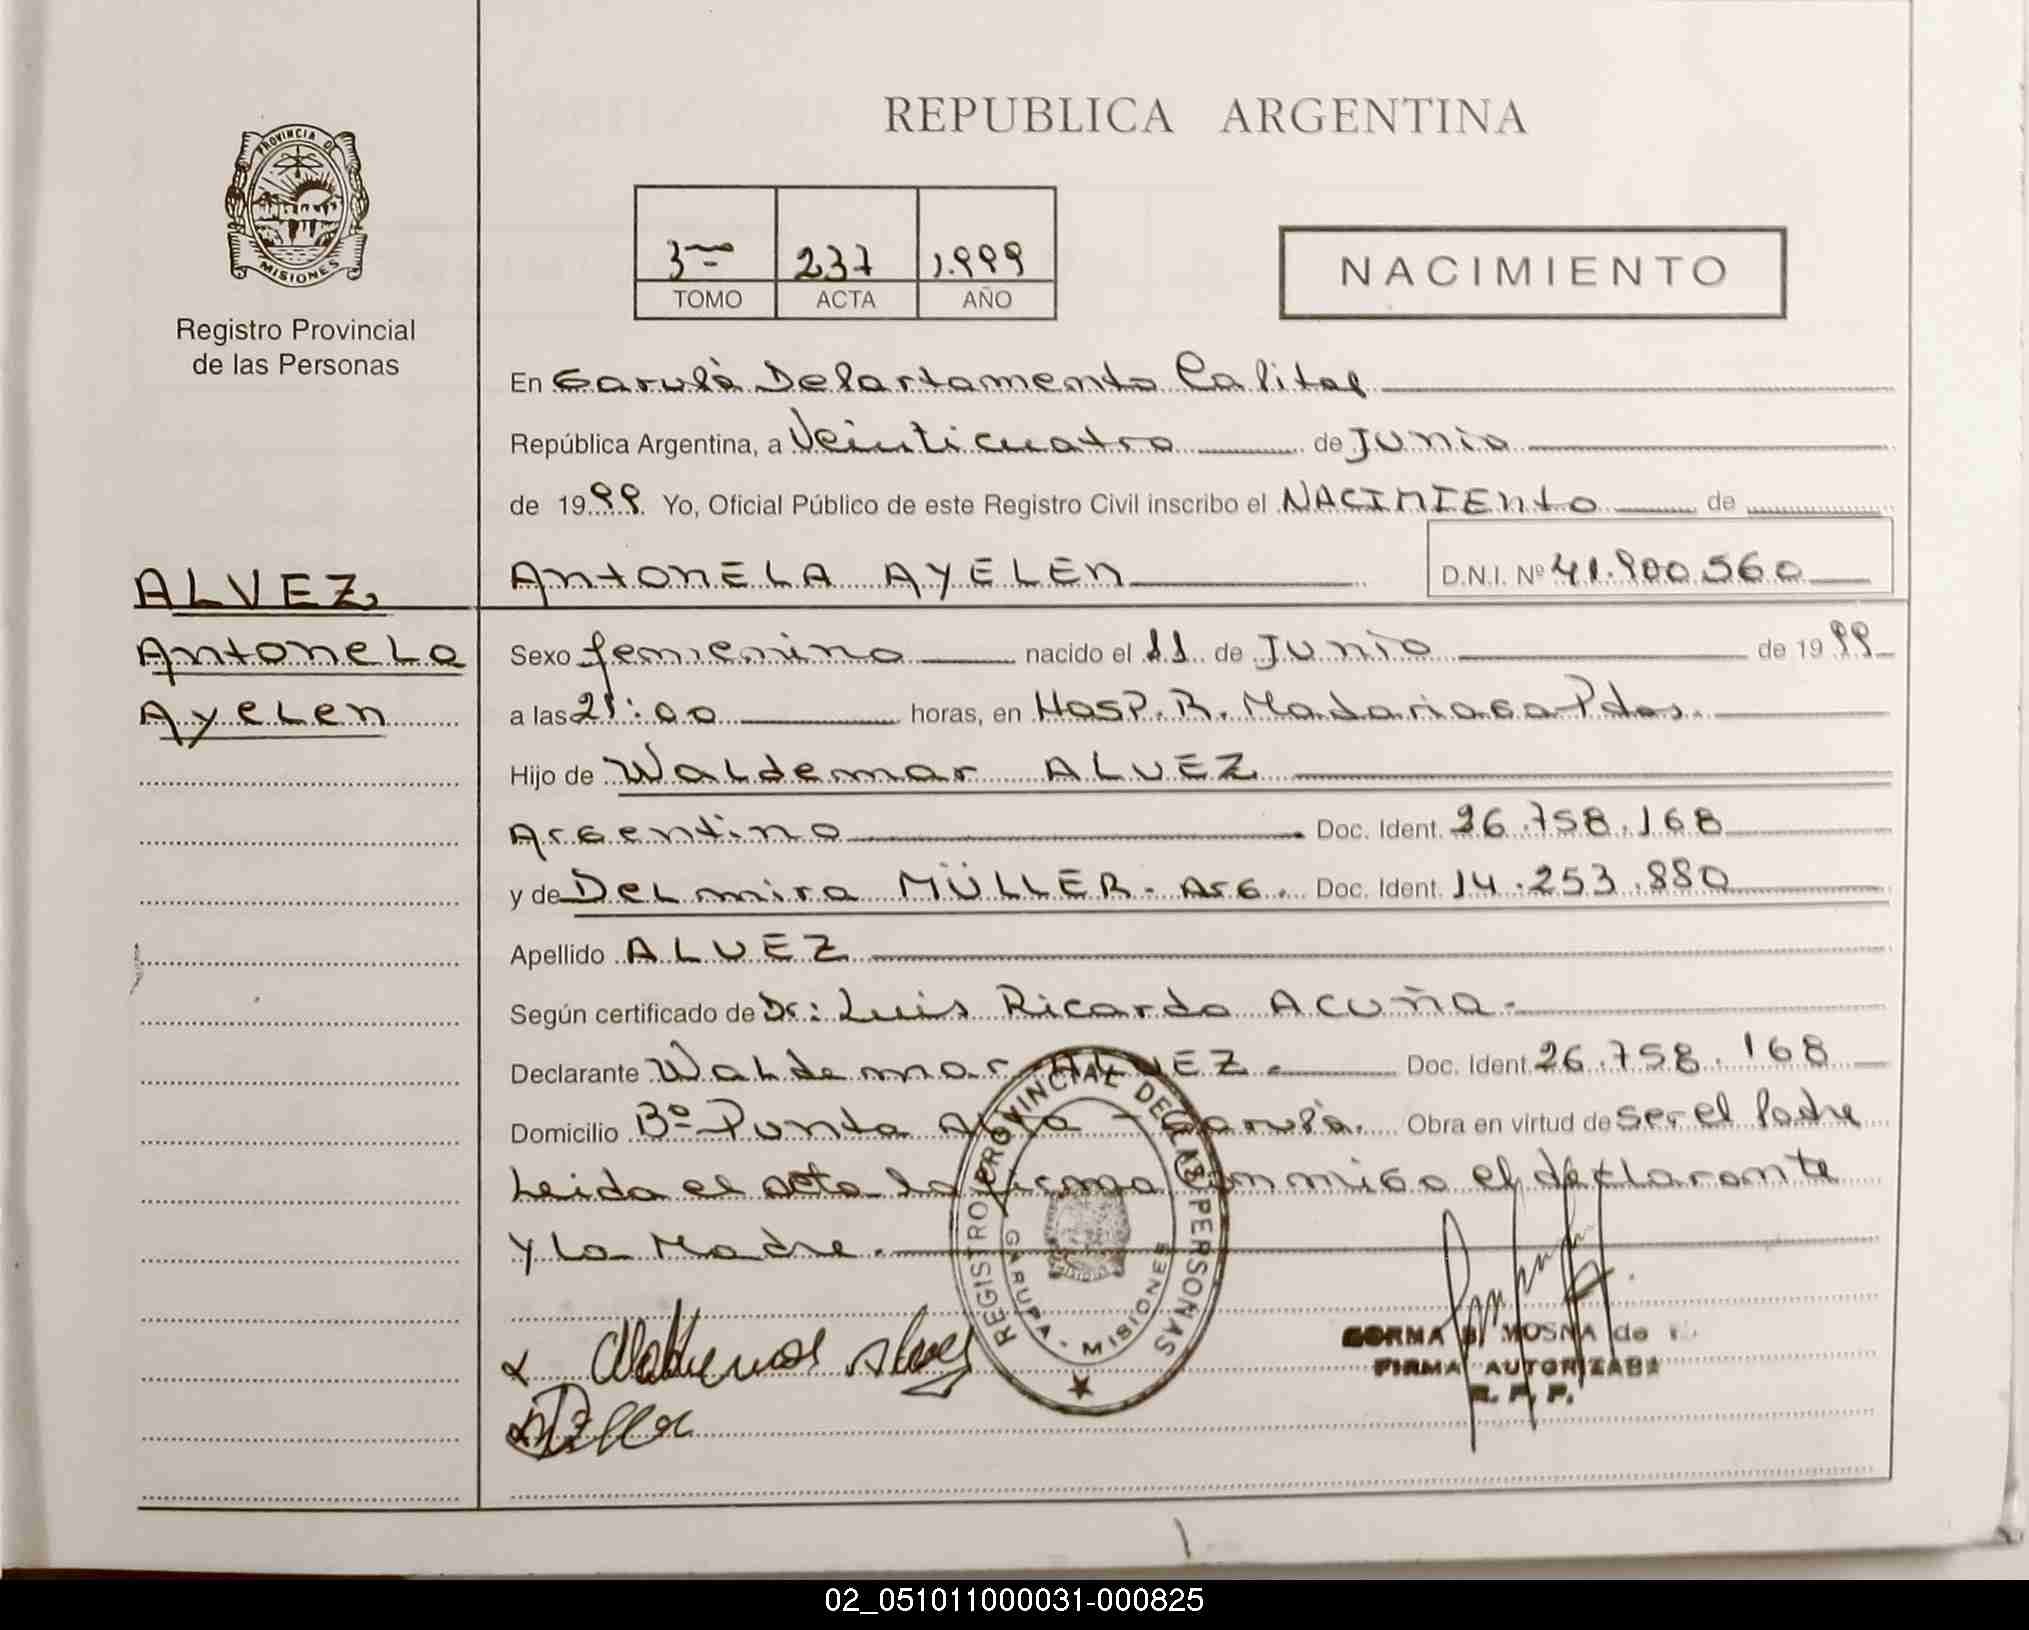 REPUBLICA ARGENTINA
PROVINCIA DE
MISIONES
Registro Provincial
de las Personas
3ro 237 1.999
TOMO ACTA AÑO
NACIMIENTO
En Garupá Departamento Capital
República Argentina, a Veinticuatro de Junio
de 1999 Yo, Oficial Público de este Registro Civil inscribo el NACIMIENTO de
ANTONELA AYELEN D.N.I. Nº 41.900.560
ALVEZ
Antonela
Ayelen
Sexo femenino nacido el 11 de Junio de 1999
a las 21:00 horas, en Hosp. R. Madariaga - Pdas.
Hijo de Waldemar ALVEZ
Argentino Doc. Ident. 26.758.168
y de Delmira MÜLLER - Arg. Doc. Ident. 14.253.880
Apellido ALVEZ
Según certificado de Dr: Luis Ricardo ACUÑA.
Declarante Waldemar ALVEZ. Doc. Ident. 26.758.168
Domicilio Bº Punta Alta - Garupá. Obra en virtud de Ser el Padre
Leida el acta la firma conmigo el declarante
y La Madre.
REGISTRO PROVINCIAL DE LAS PERSONAS
GARUPA - MISIONES
Waldemar Alvez
MOSNA de
FIRMA AUTORIZADA
R. P. P.
02_051011000031-000825